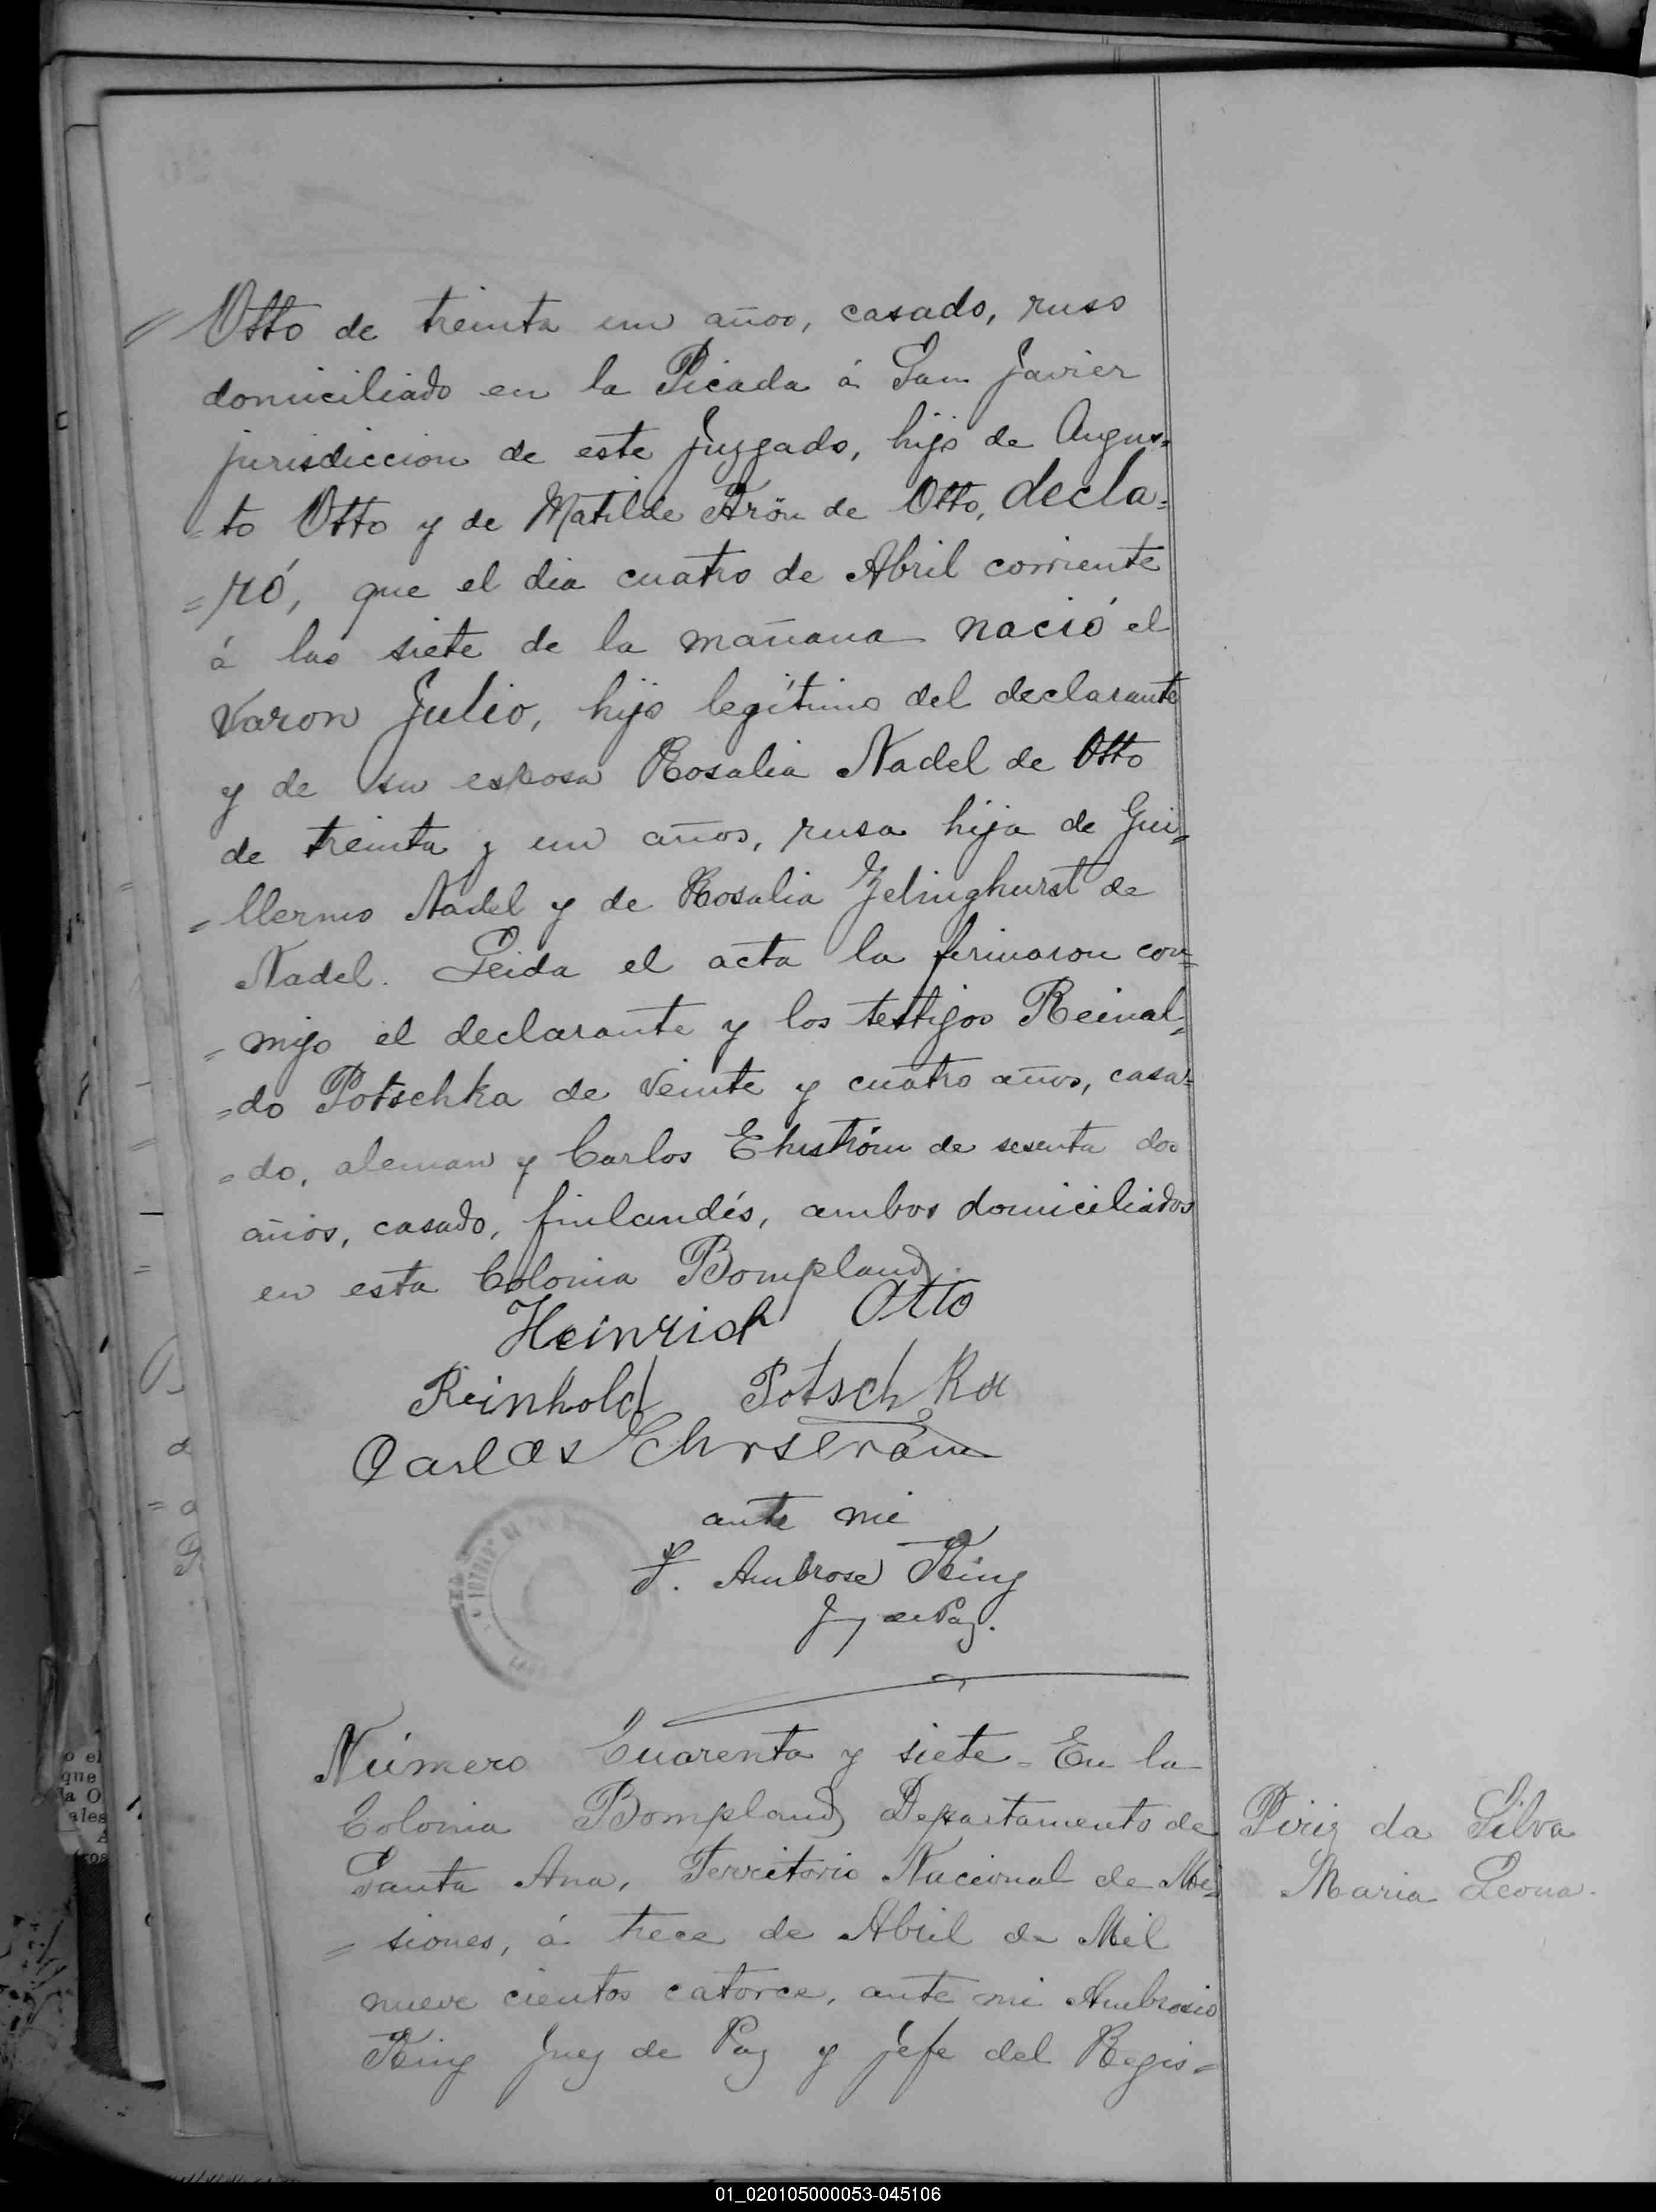 Otto de treinta un años, casado, ruso
domiciliado en la Picada á San Javier
jurisdiccion de este Juzgado, hijo de Augus=
=to Otto y de Matilde Krön de Otto, decla=
=ró, que el dia cuatro de Abril corriente
á las siete de la mañana nació el
varon Julio, hijo legítimo del declarante
y de su esposa Rosalia Nadel de Otto
de treinta y un años, rusa hija de Gui=
=llermo Nadel y de Rosalia Zelinghurst de
Nadel. Leida el acta la firmaron con=
=migo el declarante y los testigos Reinal=
=do Potschka de veinte y cuatro años, casa=
=do, aleman y Carlos Ehrström de sesenta dos
años, casado, finlandés, ambos domiciliados
en esta Colonia Bompland.
Heinrich Otto
Reinhold Potschka
Carlos Ehrström
ante mi
J. Ambrose King
Juez de Paz.
Número Cuarenta y siete = En la
Colonia Bompland Departamento de
Santa Ana, Territorio Nacional de Mi=
=siones, á trece de Abril de Mil
nueve cientos catorce, ante mi Ambrosio
King Juez de Paz y Jefe del Regis=
Piriz da Silva
Maria Leona.
o el
que
la O
ales
01_020105000053-045106